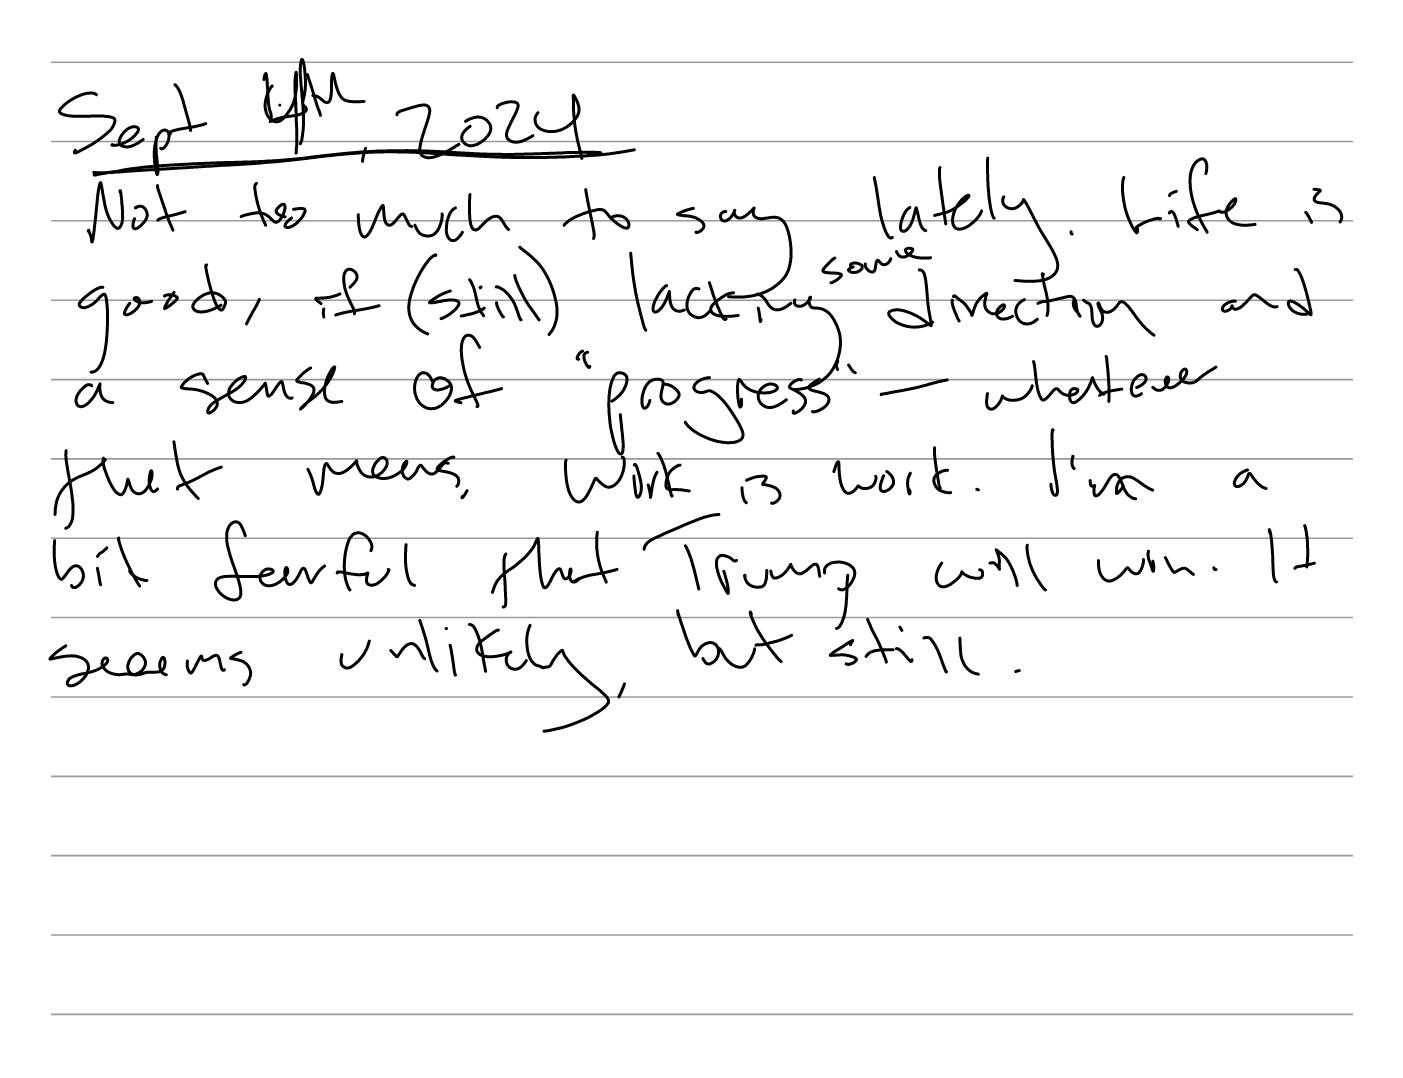 Sept 4th, 2024
Not too much to say lately. Life is
good, if (still) lacking some direction and
a sense of "progress" — whatever
that means. Work is work. I'm a
bit fearful that Trump will win. It
seems unlikely, but still.